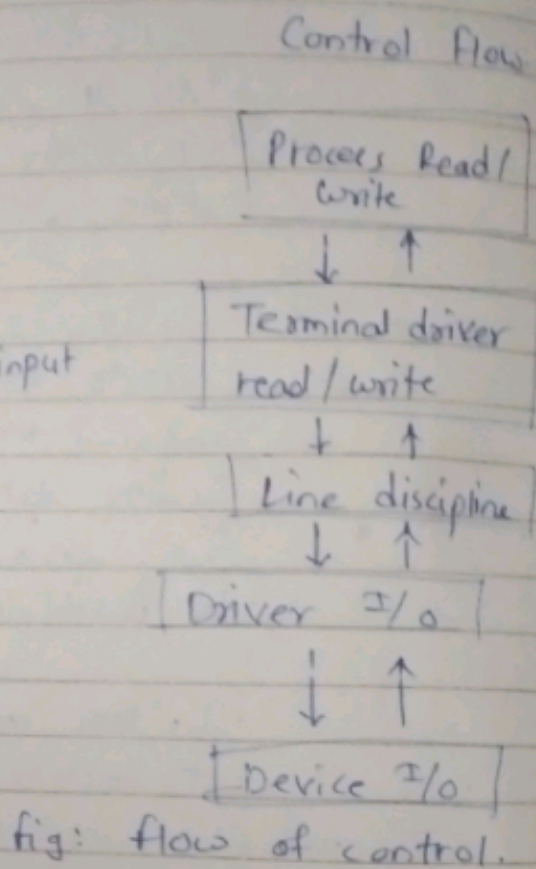 Control flow
Process Read/
write
Terminal driver
input
read / write
Line discipline
Driver I/O
Device I/O
fig: flow of control.